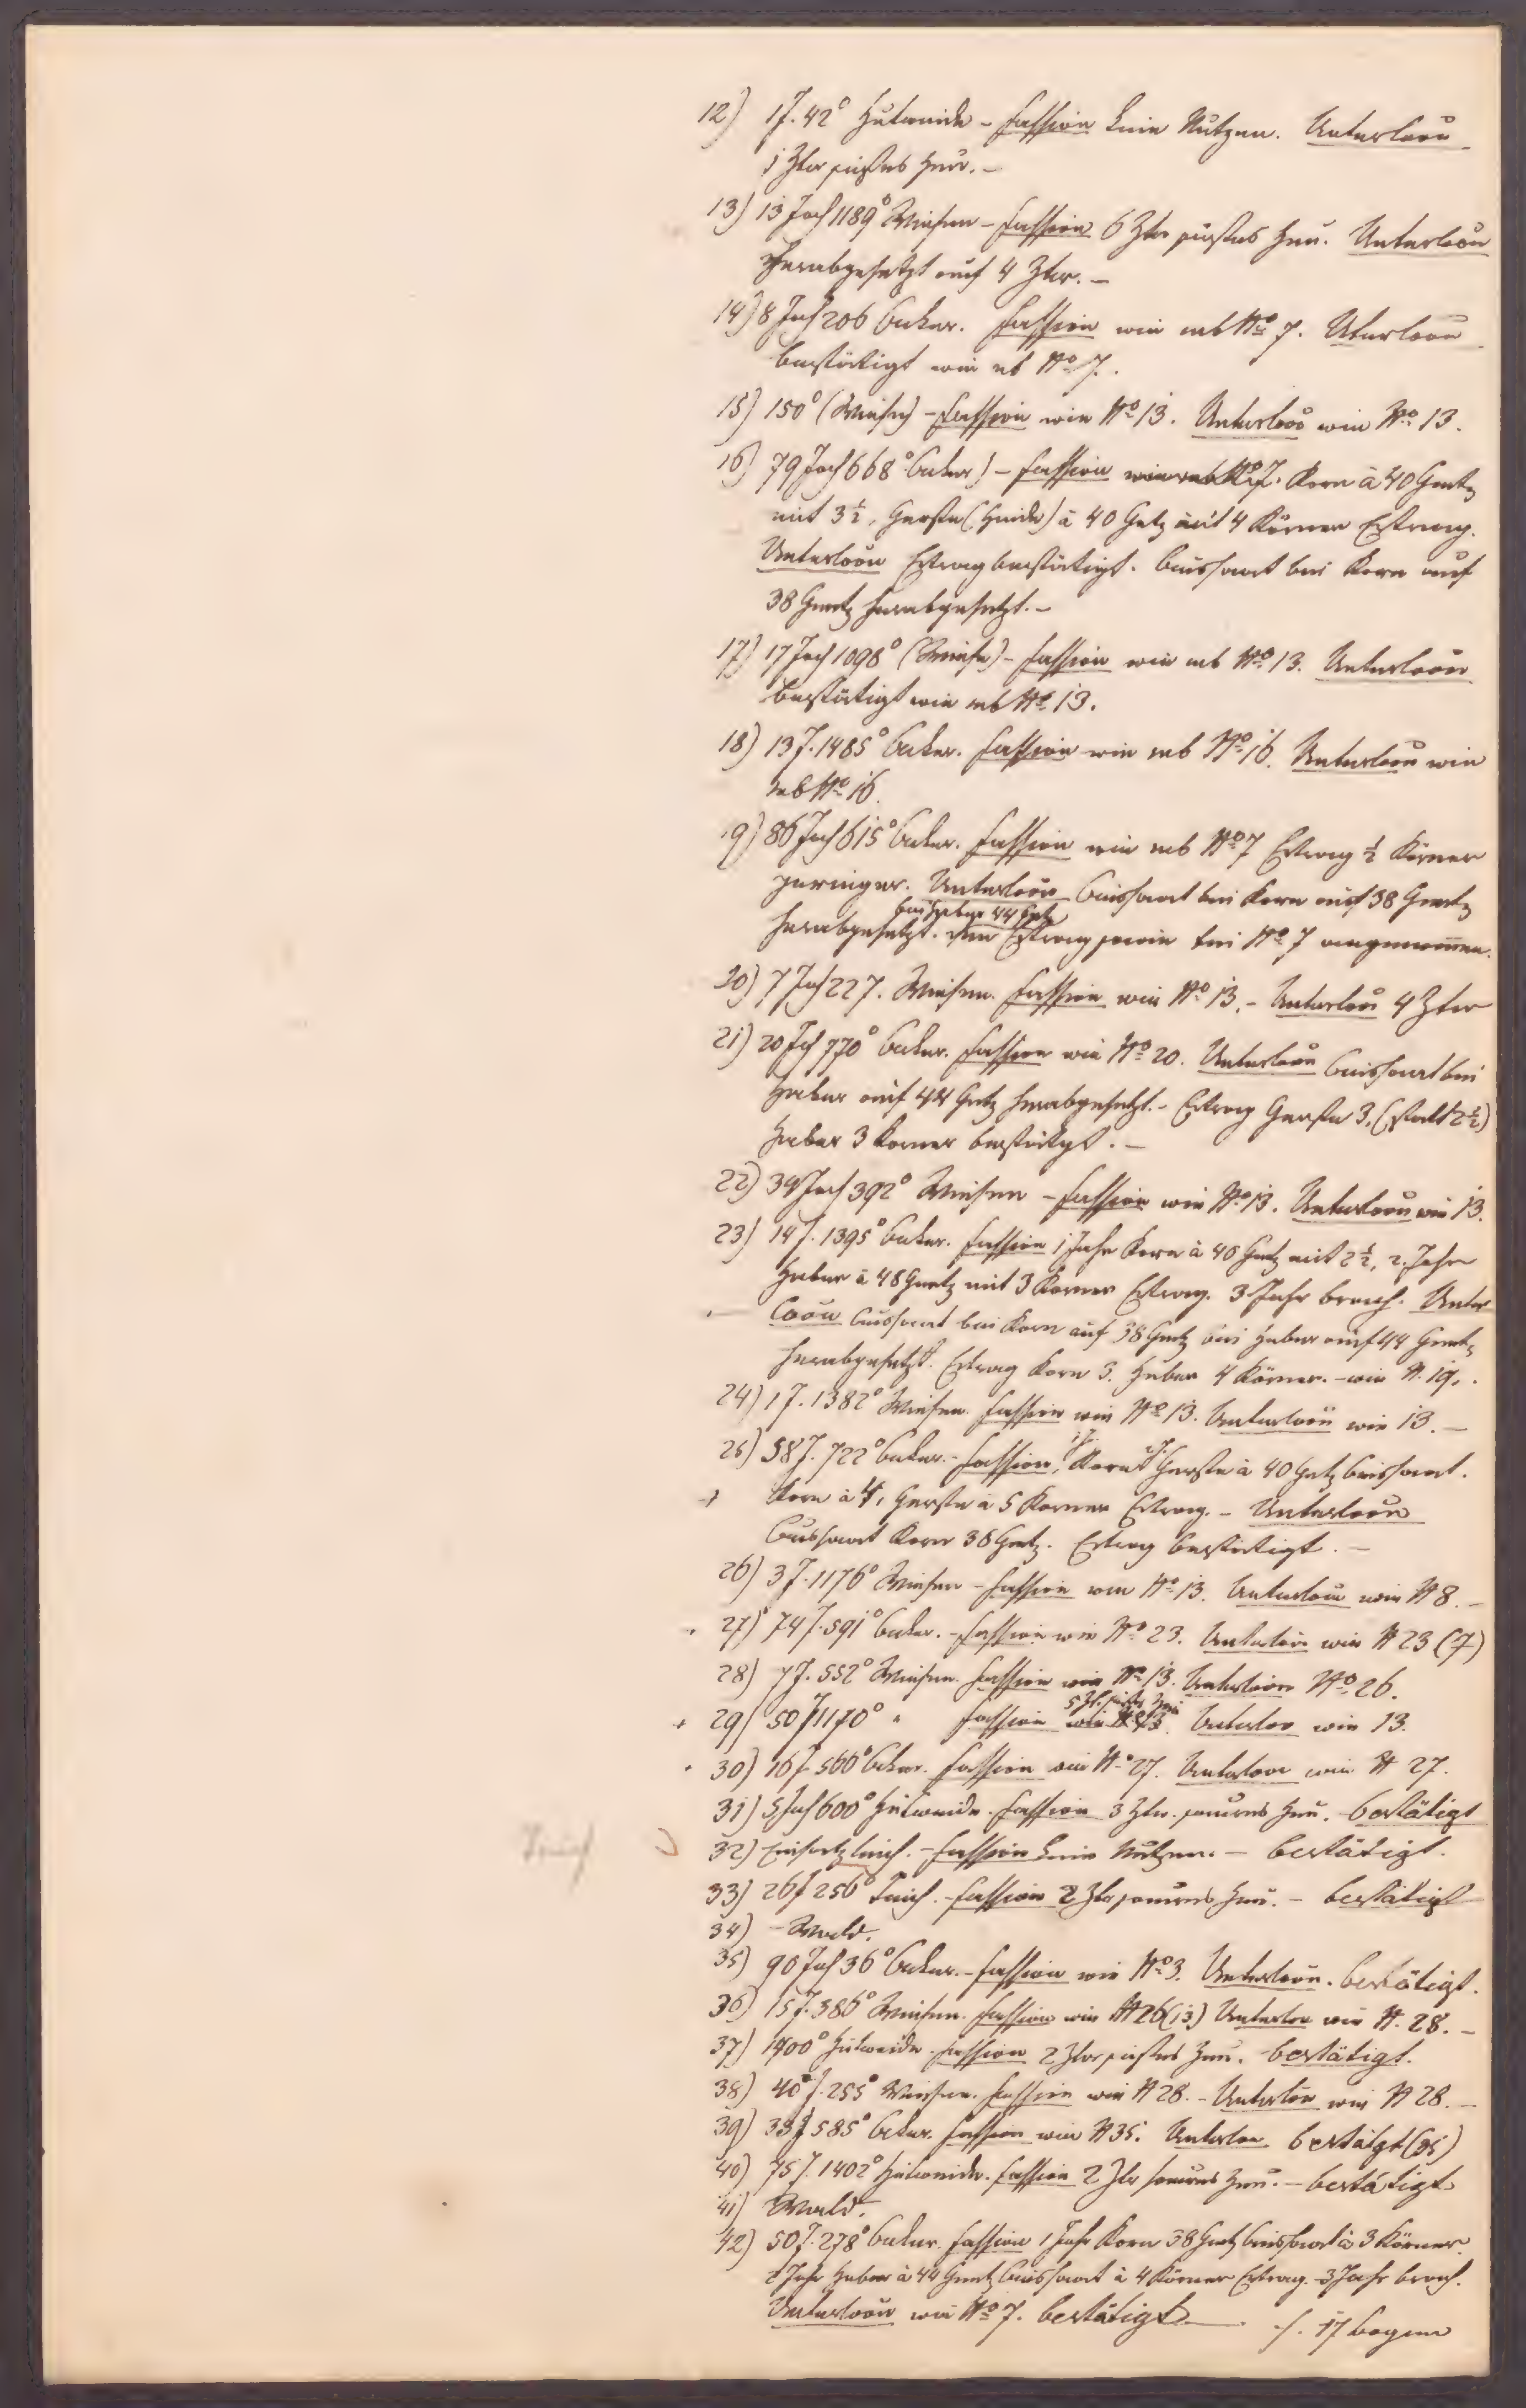 12) 1 J. 42° Hutweide - Fassion kein Nutzen. Unterloou
1 Ztr süßes Heu. -
13) 13 Joch 1189° Wiesen - Fassion 6 Ztr süßes Heu. Unterloou
herabgesetzt auf 4 Ztr. -
14) 8 Joch 206 Acker. Fassion wie sub No 7. Uterloou
bestätigt wie sub No 7.
15) 150° (Wiese) - Fassion wie No 13. Unterloou wie No 13.
16) 79 Joch 668° Acker) - Fassion wie sub No 7. Korn à 40 Gmetz
mit 3 ½, Gerste (Heide) à 40 Getz mit 4 Körner Ertrag.
Unterloou Ertrag bestätigt. Aussaat bei Korn auf
38 Gmetz herabgesetzt. -
17) 17 Joch 1098° (Wiese) - Fassion wie sub No 13. Unterloou
bestätigt wie sub No 13.
18) 13 J. 1485° Acker. Fassion wie sub No 16. Unterloou wie
sub No 16.
19) 86 Joch 615° Acker. Fassion wie sub No 7 Ertrag ½ Körner
geringer. Unterloou Aussaat bei Korn auf 38 Gmetz
bei Haber 44 Getz
herabgesetzt. Den Ertrag sowie bei No 7 angenommen.
20) 7 Joch 227. Wiesen. Fassion wie No 13. - Unterloou 4 Ztr
21) 20 Joch 770° Acker. Fassion wie No 20. Unterloou Aussaat bei
Haber auf 44 Getz herabgesetzt. - Ertrag Gerste 3. (statt 2½)
Haber 3 Korner bestätigt. -
22) 34 Joch 392° Wiesen - Fassion wie No 13. Unterloou wie 13.
23) 14 J. 1395° Acker. Fassion 1 Jahr Korn à 40 Gmetz mit 2½, 2. Jahr
Haber à 48 Gmetz mit 3 Korner Ertrag. 3 Jahr brach. Unter
loou Aussaat bei Korn auf 38 Gmetz bei Haber auf 44 Gmetz
herabgesetzt. Ertrag Korn 3. Haber 4 Körner. - wie N. 19.
24) 1 J. 1382° Wiesen. Fassion wie No 13. Unterloou wie 13. -
25) 58 J. 722° Acker. - Fassion, 1 J. Korn 2 J. Gerste à 40 Getz Aussaat.
Korn à 4, Gerste à 5 Korner Ertrag. - Unterloou
Aussaat Korn 38 Gmetz. Ertrag bestätigt. -
26) 3 J. 1176° Wiesen - Fassion wie No 13. Unterloou wie N 8. -
27) 74 J. 591° Acker. - Fassion wie No 23. Unterloou wie N 23 (7)
28) 7 J. 552° Wiesen. Fassion wie No 13. Unterloou No 26.
5 Zt. süßes Heu
29) 50 J 1170° " Fassion wie N 13. Unterloo wie 13.
30) 16 J 566° Acker. Fassion wie No 27. Unterloou wie N 27.
31) 5 Joch 600° Hutweide. Fassion 3 Ztr. saures Heu. bestätigt
32) Einsatzteich. - Fassion kein Nutzen. - bestätigt.
Teich
33) 26 J 256° Teich. - Fassion 2 Ztr saures Heu. - bestätigt
34) - Wald.
35) 90 Joch 36° Acker. - Fassion wie No 3. Unterloou. bestätigt.
36) 15 J. 386° Wiesen. Fassion wie N 26 (13) Unterloo wie N. 28. -
37) 1400° Hutweide. Fassion 2 Ztr süßes Heu. bestätigt.
38) 40 J. 255° Wiesen. Fassion wie N 28. - Unterloou wie N 28. -
39) 33 J 585° Acker. Fassion wie N 35. Unterloo bestätgt (35)
40) 75 J. 1402° Hutweide. Fassion 2 Ztr saures Heu. - bestätigt
41) Wald.
42) 50 J. 278° Acker. Fassion 1 Jahr Korn 38 Gmetz Aussaat à 3 Körner.
2 Jahr Haber à 44 Gmetz Aussaat à 4 Körner Ertrag. 3 Jahr brach.
Unterloou wie No 7. bestätigt -
s. 17 bogen